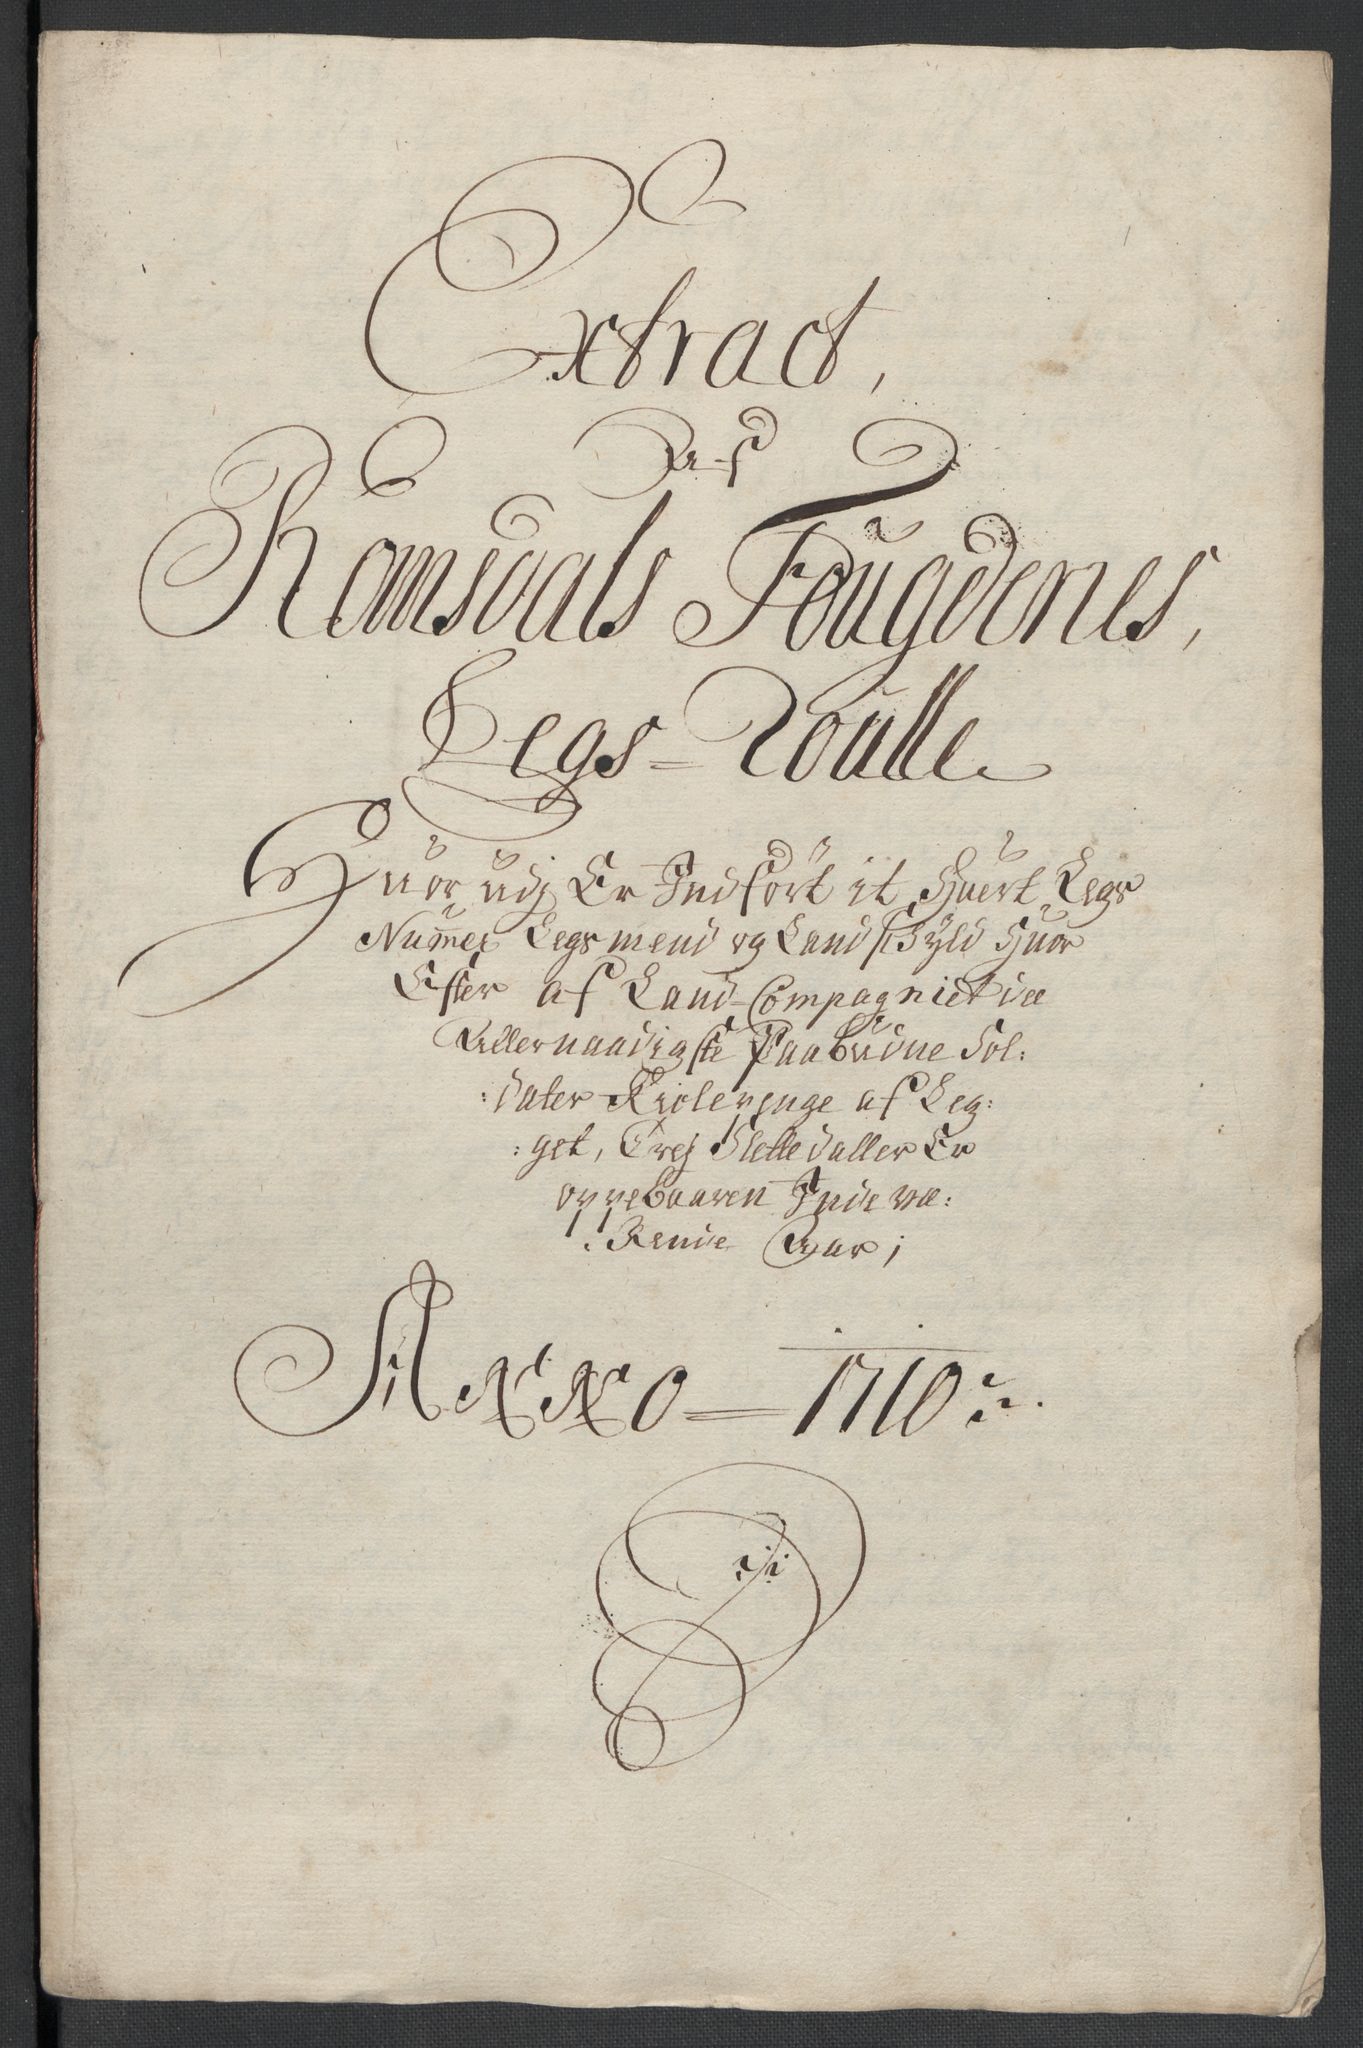 Extract,
Af
Romsdals Fougderies,
Legs-Roulle
Huor udj Er Indført it Huert Legs
Num̅er Legsmend og Landskyld Huor
Efter af Land-Compagniet de
Allernaadigste Paabudne Sol:
:dater Kiolepenge af Leg:
:get, Trej Slettedaller Er
oppebaaren Inde væ:
:Rende Aar;
ANNO = 1710: